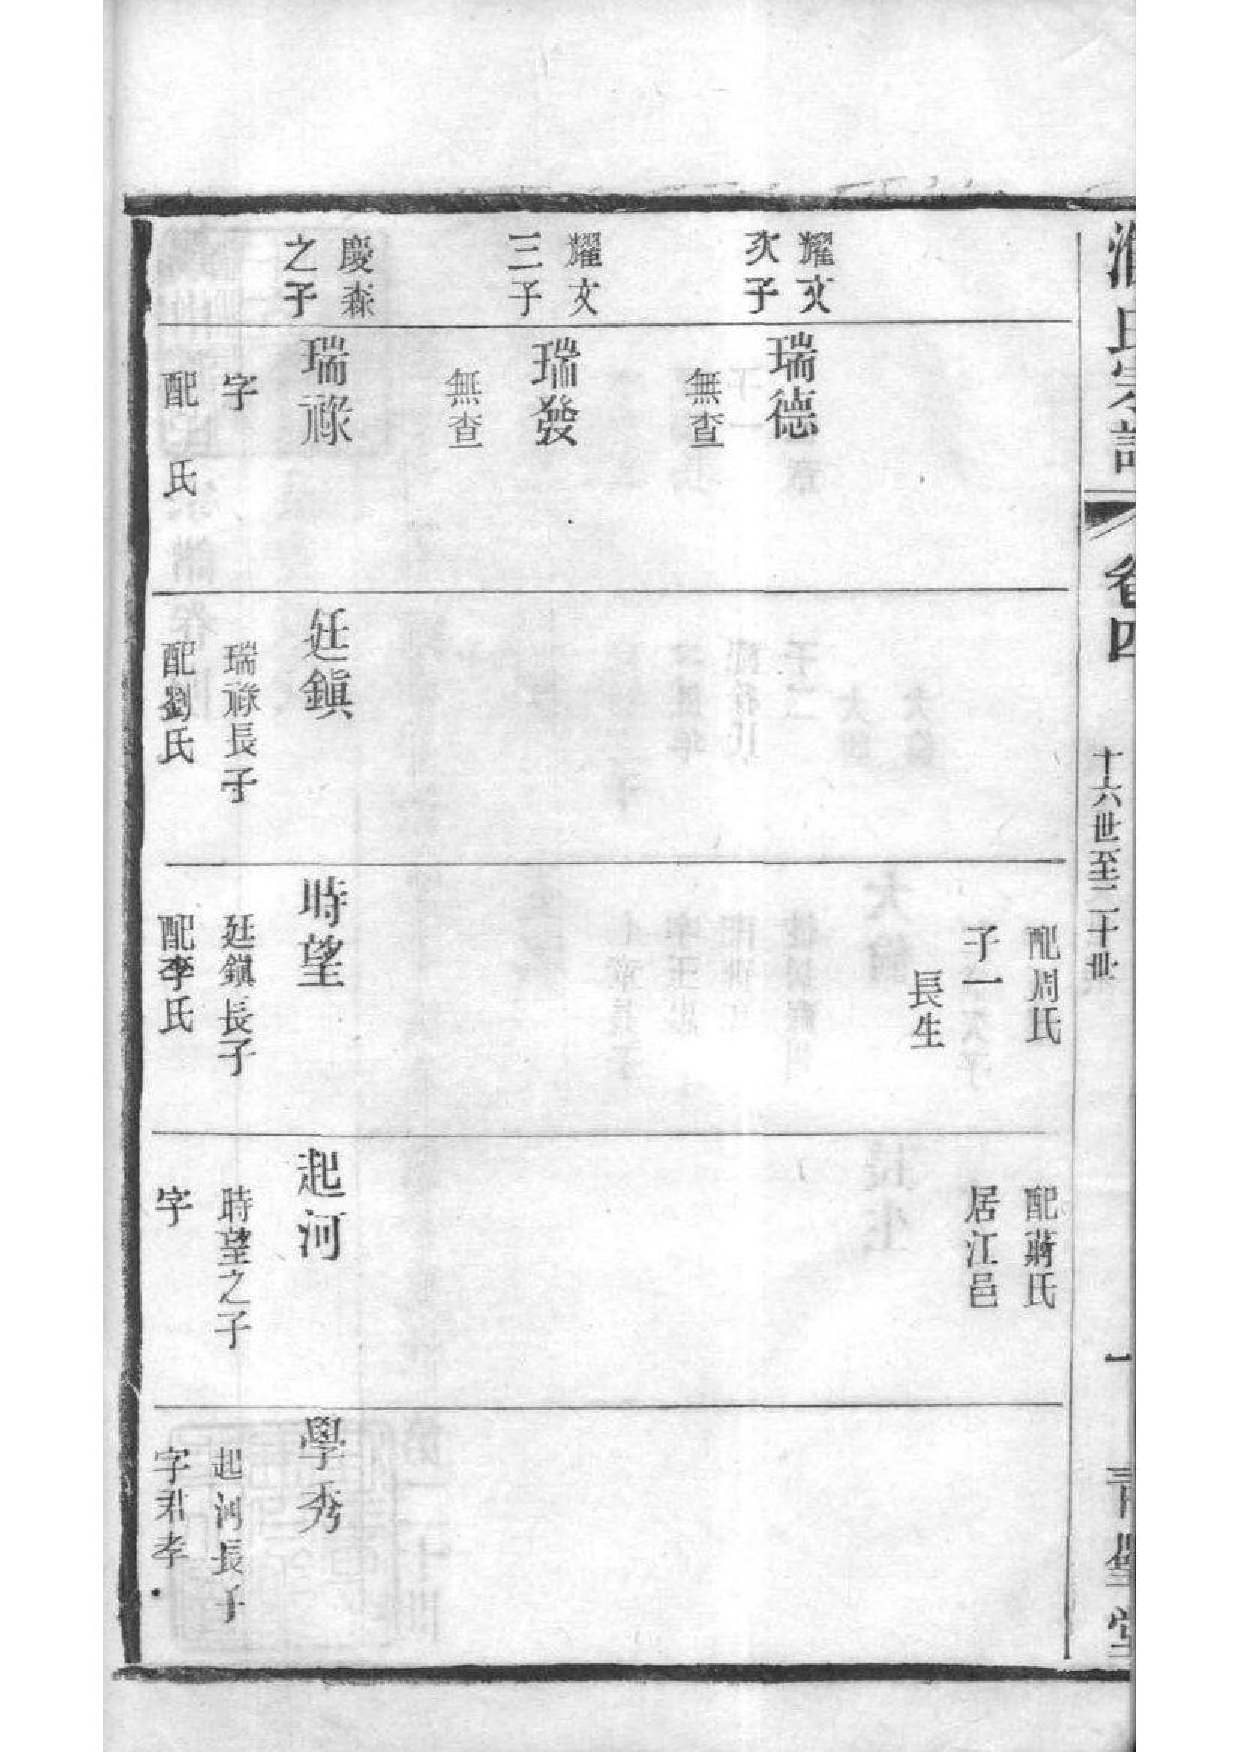 氏宗譜
卷四
十六世至二十世
一
青藜堂
耀文
次子
瑞德
無查
耀文
三子
瑞發
無查
慶森
之子
瑞祿
字
配 氏
廷鎭
瑞祿長子
配劉氏
配周氏
子一
長生
時望
廷鎭長子
配李氏
配蔣氏
居江邑
起河
時望之子
字
學秀
起河長子
字君孝